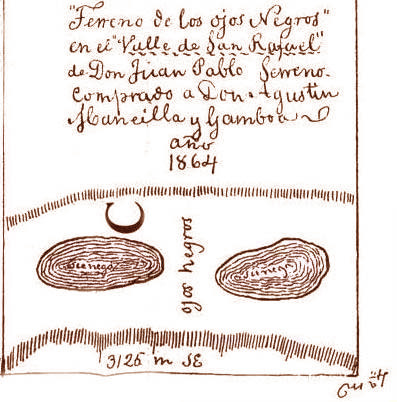 "Terreno de los ojos Negros"
en el "Valle de San Rafael"
de Don Juan Pablo Serreno.
Comprado a Don Agustin
Mancilla y Gamboa
año
1864
cienega
ojos negros
cienega
3125 m SE